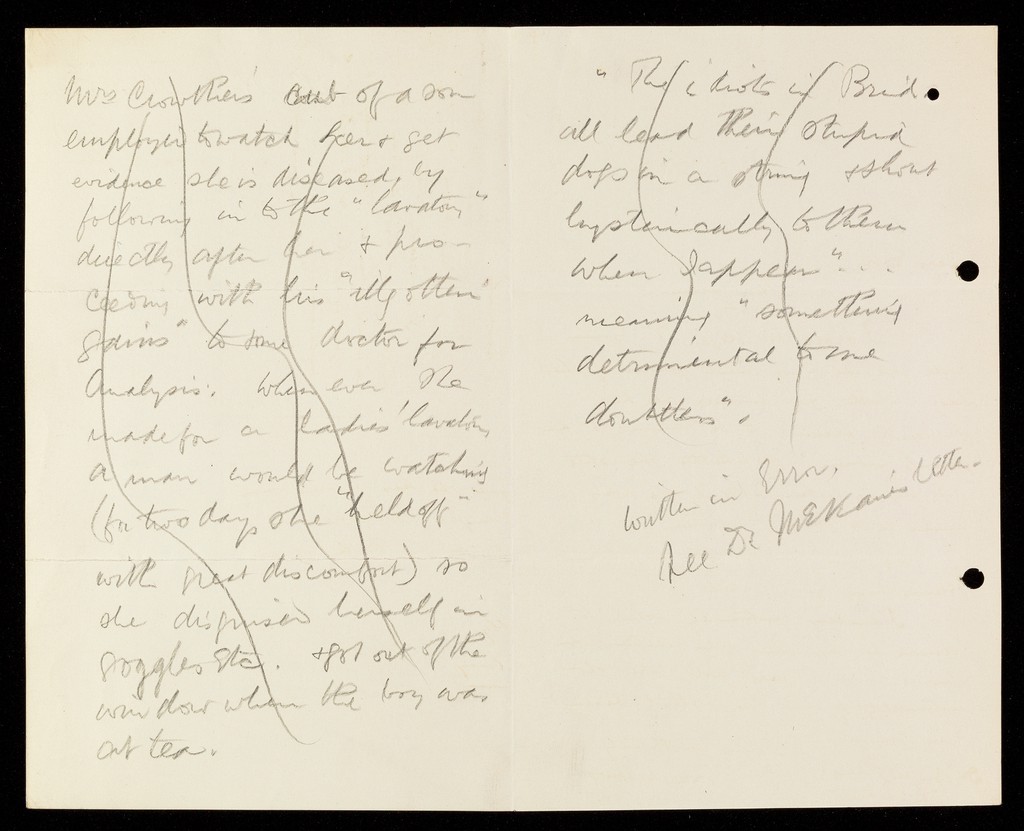 Mrs Crowther's of a son
employed to watch her & get
evidence she is diseased, by
following in to the "lavatory"
directly after her & pro-
ceeding with his "illgotten
gains" to some doctor for
Analysis. Whenever she
made for a ladies' lavatory
a man would be watching
(for two days she "held off"
with great discomfort) so
she disguised herself in
goggles Etc. & got out of the
window when the boy was
at tea.
"The idiots in Brid.
all lead their stupid
dogs in a string & shout
hysterically to them
when I appear" ...
meaning "something
detrimental to me
doubtless".
written in Error.
See Dr McKane's letter.